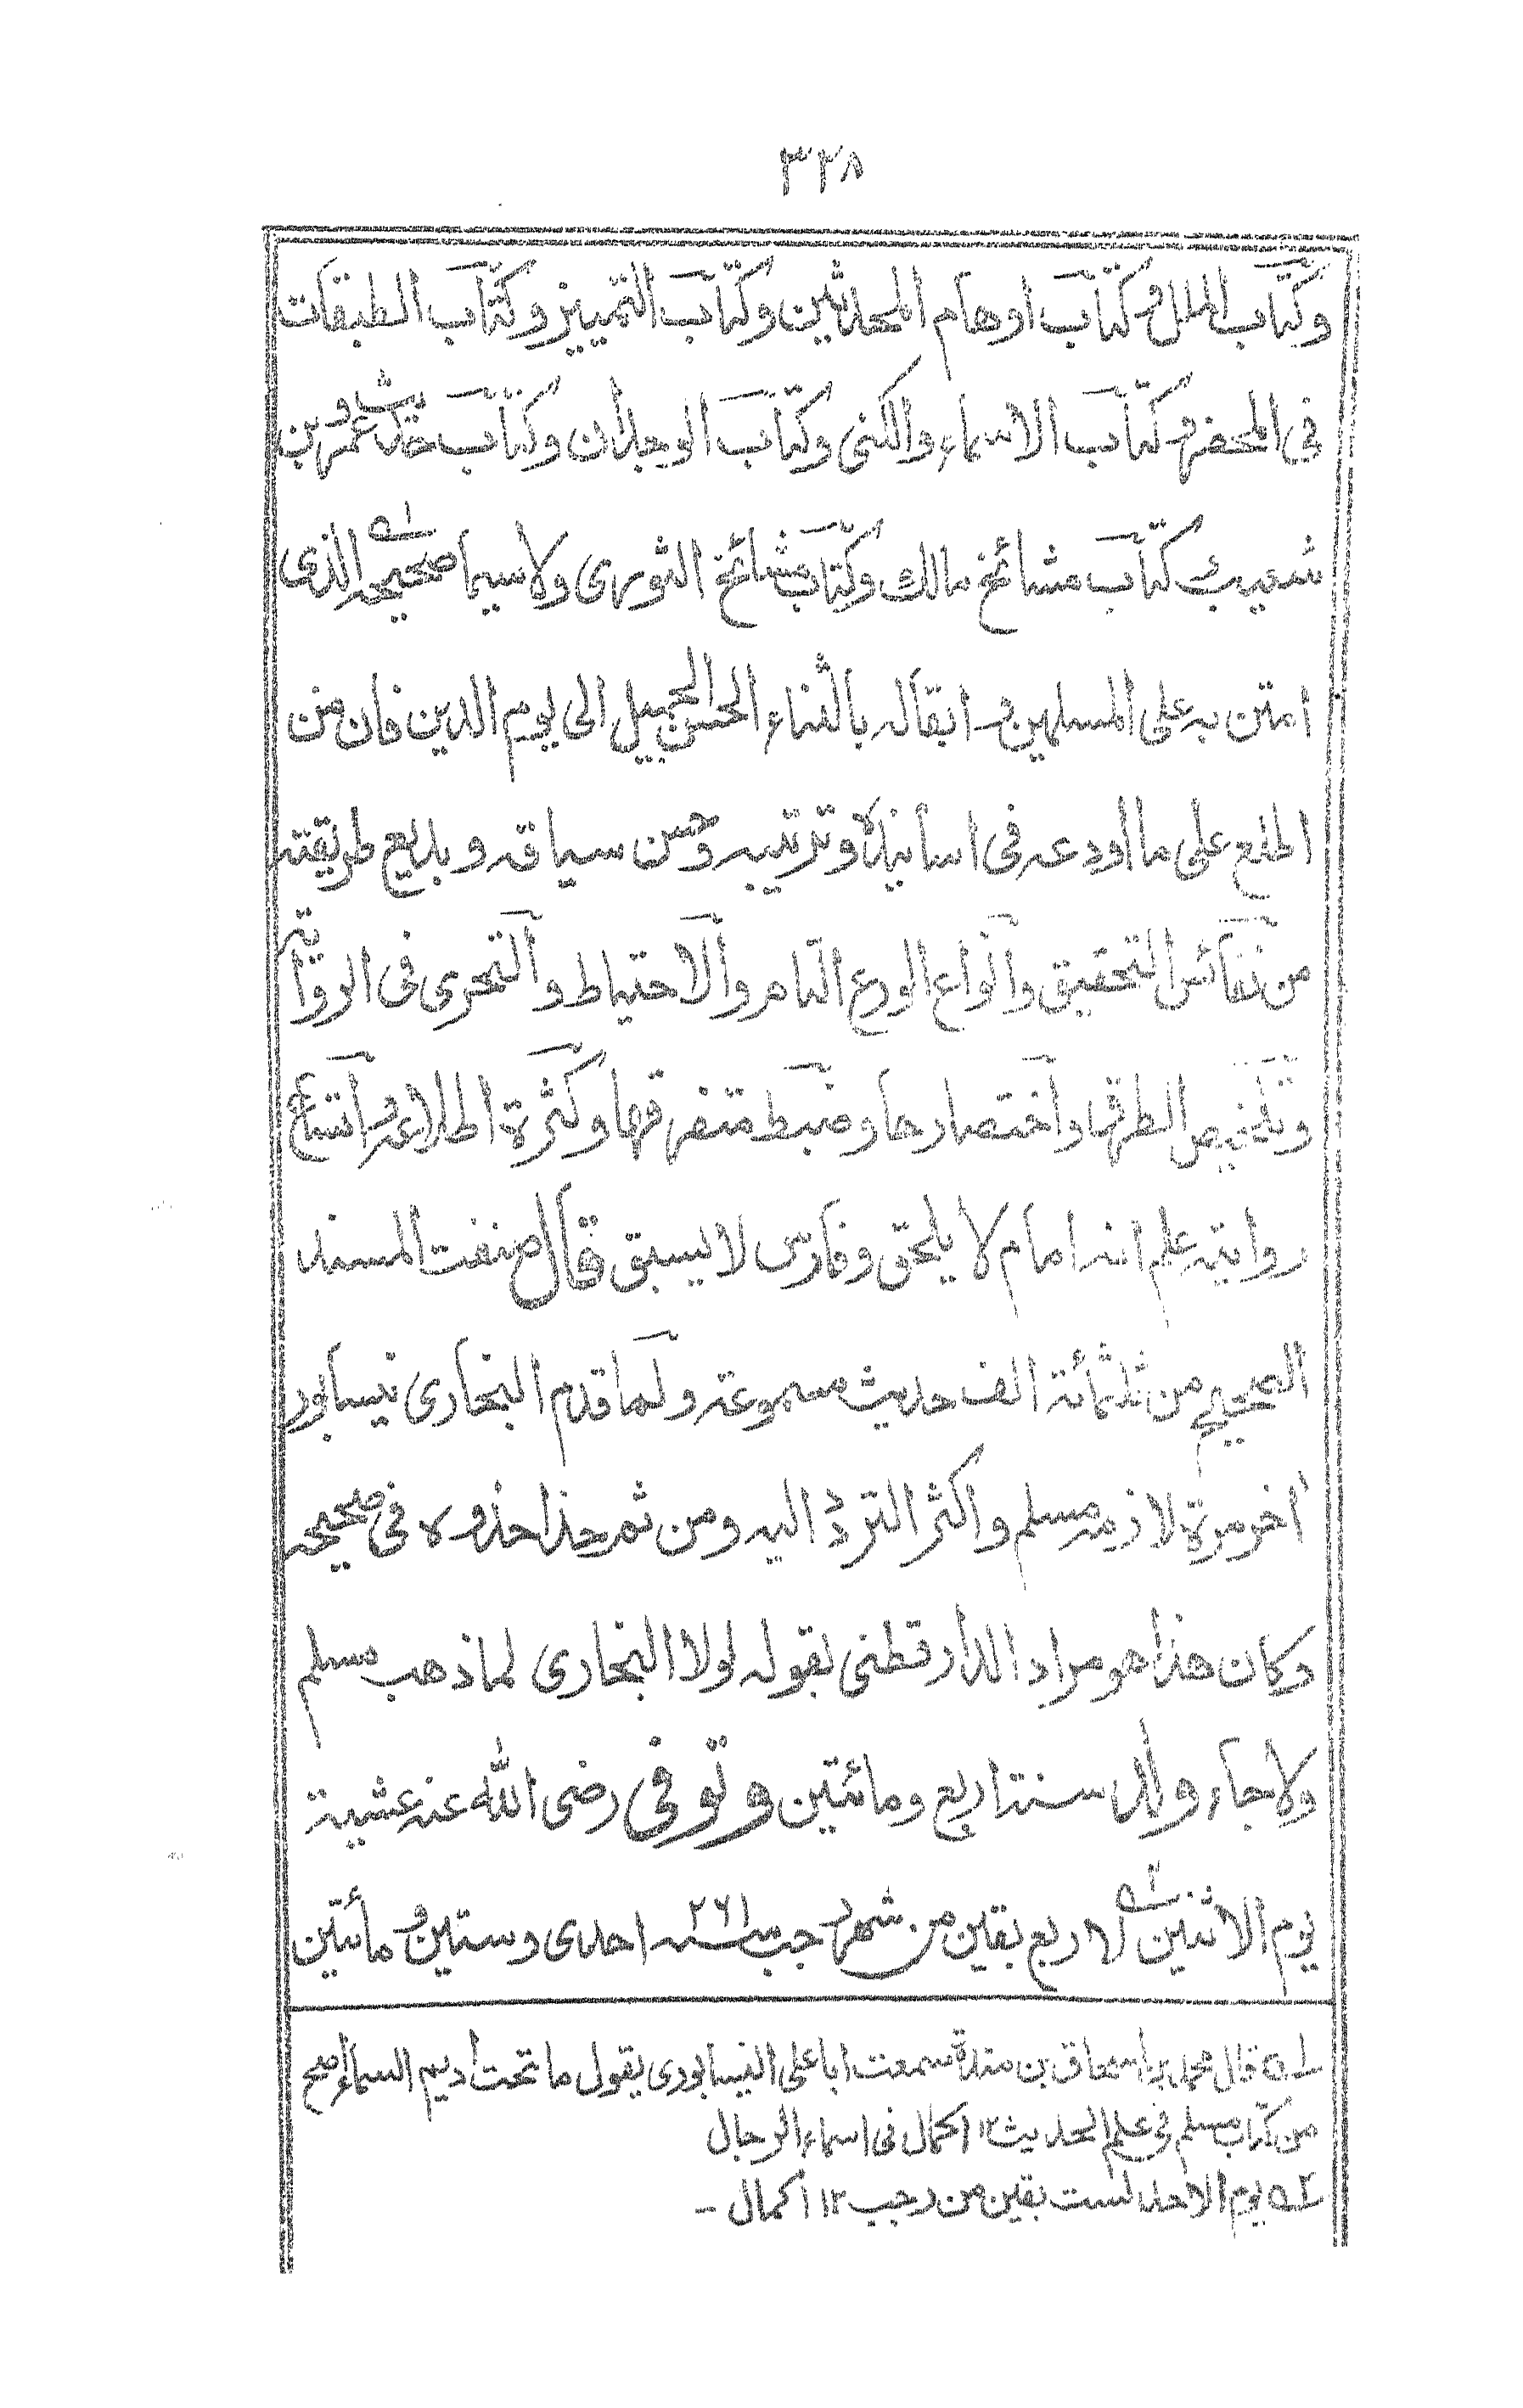 ٣٢٨
وكتاب العلل وكتاب اوهام المحدثين وكتاب التمييز وكتاب الطبقات
في المخضرمين كتاب الاسماء والكنى وكتاب الوحدان وكتاب حديث عمرو بن
شعيب وكتاب مشائخ مالك وكتاب مشائخ الثوري ولا سيما صحيحه الذى
امتن به على المسلمين و ابقاله بالثناء الحسن الجميل الى يوم الدين فان من
اطلع على ما اودعه فى اسانيده وترتيبه وحسن سياقه وبديع طريقته
من نفائس التحقيق وانواع الورع التام والاحتياط والتحرى فى الرواية
وتلخيص الطرق واختصارها وضبط متفرقها وكثرة اطلاعه واتساع
روايته علم انه امام لا يلحق وفارس لا يسبق قال صنفت المسند
الصحيح من ثلثمائة الف حديث مسموعة ولما قدم البخارى نيسابور
اخر مرة لازمه مسلم واكثر التردد اليه ومن ثم حذا حذوه فى صحيحه
وكان هذا هو مراد الدارقطنى بقوله لولا البخارى لما ذهب مسلم
ولا جاء ولد سنة اربع ومائتين وتوفى رضى الله عنه عشية
يوم الاثنين ٢ لاربع بقين من شهر رجب سنة ٢٦١ احدى وستين ومائتين
١ قال محمد بن اسحاق بن مندة سمعت ابا على النيسابورى يقول ما تحت اديم السماء اصح
من كتاب مسلم فى علم الحديث ١٢ اكمال فى اسماء الرجال
٢ يوم الاحد لست بقين من رجب ١٢ اكمال -